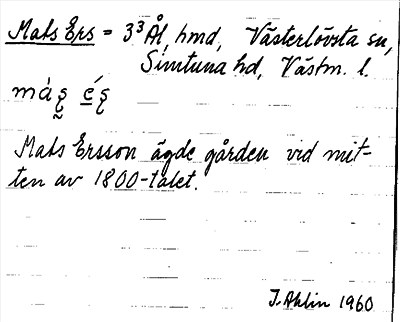 Mats Ers = 3³ Ål, hmd, Västerlövsta sn,
Simtuna hd, Västm. l.
Mats Ersson ägde gården vid mit-
ten av 1800-talet.
I. Ahlin 1960